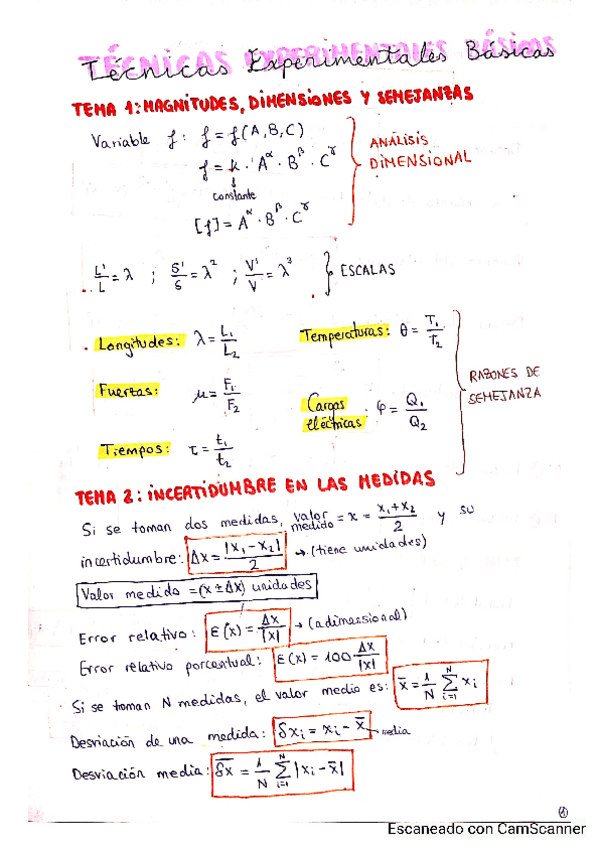 Técnicas Experimentales Básicas
TEMA 1: MAGNITUDES, DIMENSIONES Y SEMEJANZAS
Variable f: f = f(A, B, C)
f = k · A^α · B^β · C^γ
constante
[f] = A^α · B^β · C^γ
ANÁLISIS
DIMENSIONAL
L'/L = λ ; S'/S = λ² ; V'/V = λ³
ESCALAS
Longitudes: λ = L₁/L₂
Temperaturas: θ = T₁/T₂
Fuerzas: μ = F₁/F₂
Cargas
eléctricas: φ = Q₁/Q₂
Tiempos: τ = t₁/t₂
RAZONES DE
SEMEJANZA
TEMA 2: INCERTIDUMBRE EN LAS MEDIDAS
Si se toman dos medidas, valor medido = x = (x₁+x₂)/2 y su
incertidumbre: Δx = |x₁-x₂|/2 → (tiene unidades)
Valor medido = (x ± Δx) unidades
Error relativo: E(x) = Δx/|x| → (adimensional)
Error relativo porcentual: E(x) = 100 Δx/|x|
Si se toman N medidas, el valor medio es: x̄ = 1/N ∑_{i=1}^{N} xᵢ
Desviación de una medida: δxᵢ = xᵢ - x̄ → media
Desviación media: δx̅ = 1/N ∑_{i=1}^{N} |xᵢ - x̄|
①
Escaneado con CamScanner